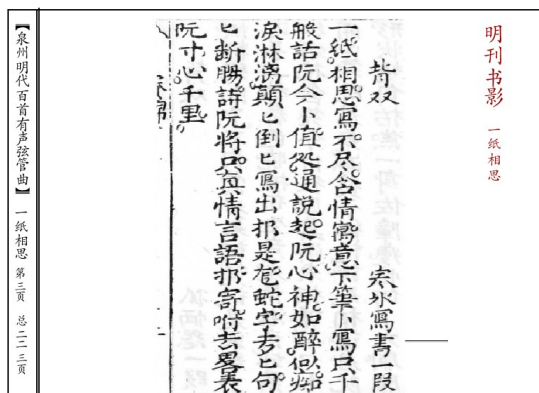 明刊书影 一纸相思
背双 寒水寫書一段
一紙相思寫不尽。含情寓意下筆卜寫只千
般話。阮今卜值処通說起。阮心神如醉似痴
淚淋漓。顛匕倒匕寫出是尨蛇字。匕句
匕断腸詩。阮将只真情言語寄咐去畧表
阮寸心千里。
【泉州明代百首有声弦管曲】 一纸相思 第三页 总二一三页